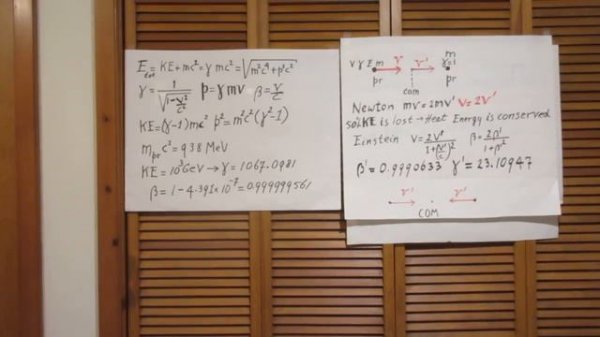 E_tot = KE + mc² = γmc² = √(m²c⁴ + p²c²)
γ = 1/√(1 - v²/c²) p = γmv β = v/c
KE = (γ-1)mc² p² = m²c²(γ²-1)
m_pr c² = 938 MeV
KE = 10³ GeV → γ = 1067.0981
β = 1 - 4.391×10⁻⁷ = 0.999999561
v γ E m v v' m γ=1
pr com pr
Newton mv = 2mv' v = 2v'
KE is lost → Heat Energy is conserved
Einstein v = 2v'/(1+(v'/c)²) β = 2β'/(1+β'²)
β' = 0.9990633 γ' = 23.10947
v' v'
COM